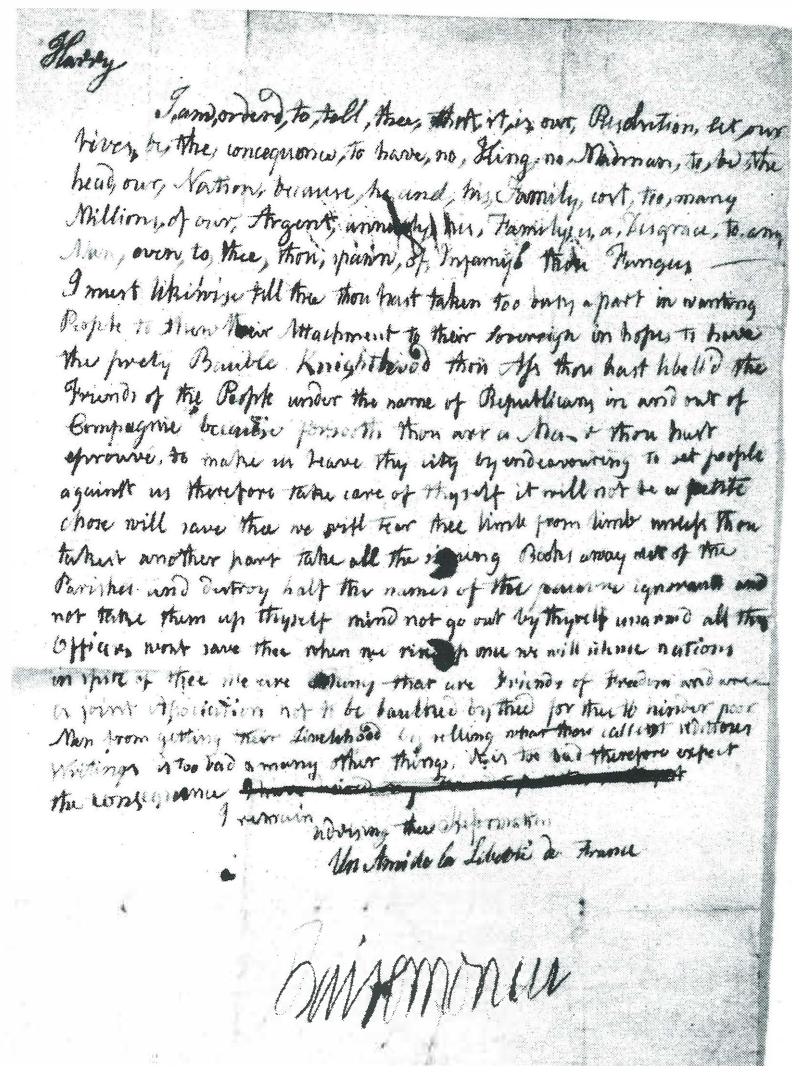 Harvy
I, am, orderd, to, tell, thee, that, it, is our, Resolution, let, our
lives, be, the, concequence, to have, no, King, no, Madman, to, be, the
head, our, Nation, because, he, and, his, Family, cost, too, many
Millions, of our, Argent, annualy, his, Family, is, a, Disgrace, to, any
Man, even, to, thee, thou, spawn, of, Infamy & thou Fungus
I must likiwise tell thee thou hast taken too busy a part in wanting
People to shew their Attachment to their Sovereign in hopes to have
the prety Bauble Knighthood thou Ass thou hast libel'd the
Friends of the People under the name of Republicans in and out of
Compagnie because forsooth thou art a Man & thou hast
eprouve, to make us leave thy city by endeavouring to set people
against us therefore take care of thyself it will not be a petite
chose will save thee we will tear thee limb from limb unless thou
takest another part take all the signing Books away out of the
Parishes and destroy half the names of the ignorants and
not take them up thyself mind not go out by thyself unarmd all thy
Officers wont save thee when we rise up one we will shew nations
in spite of thee we are that are Friends of Freedom and are
a joint Association not to be baulked by thee for thee to hinder poor
Men from getting their Livelihood by selling what thou callest seditious
Writings is too bad a many other things, it is too bad therefore expect
the consequence
I remain
advising thee Reformation
Un Ami de la Liberté de France